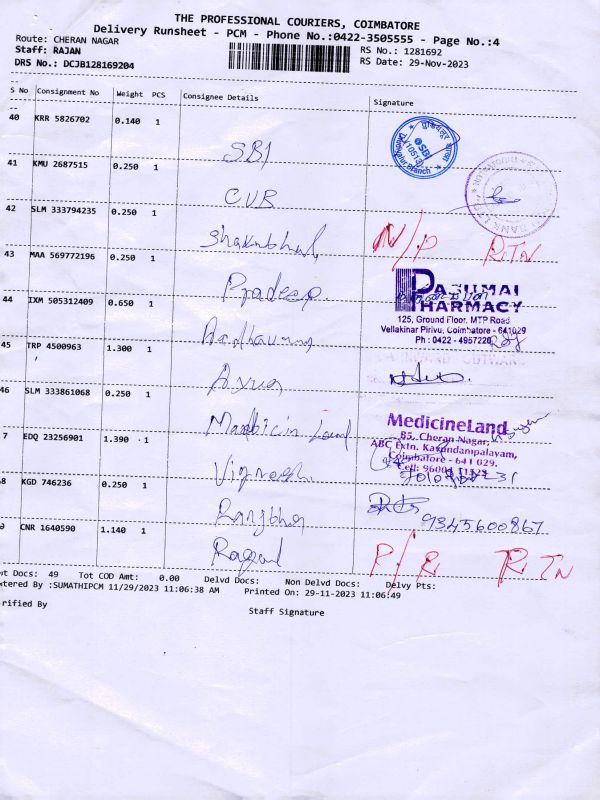 THE PROFESSIONAL COURIERS, COIMBATORE
Delivery Runsheet - PCM - Phone No.:0422-3505555 - Page No.:4
Route: CHERAN NAGAR
RS No.: 1281692
Staff: RAJAN
RS Date: 29-Nov-2023
DRS No.: DCJB128169204
S No Consignment No Weight PCS Consignee Details Signature
40 KRR 5826702 0.140 1
SBI
SBI
(10618)
Branch
41 KMU 2687515 0.250 1
CUB
42 SLM 333794235 0.250 1
N/P RTN
43 MAA 569772196 0.250 1
Pradeep
PASUMAI
PHARMACY
125, Ground Floor, MTP Road
Vellakinar Pirivu, Coimbatore - 641029
Ph : 0422 - 4957220
44 IXM 505312409 0.650 1
45 TRP 4500963 1.300 1
46 SLM 333861068 0.250 1
MedicineLand
85, Cheran Nagar,
ABC Extn. Kavundampalayam,
Coimbatore - 641 029.
7 EDQ 23256901 1.390 1
Vignesh
8 KGD 746236 0.250 1
9345600867
CNR 1640590 1.140 1
P/R RTN
Docs: 49 Tot COD Amt: 0.00 Delvd Docs: Non Delvd Docs: Delvy Pts:
ntered By :SUMATHIPCM 11/29/2023 11:06:38 AM Printed On: 29-11-2023 11:06:49
rified By
Staff Signature